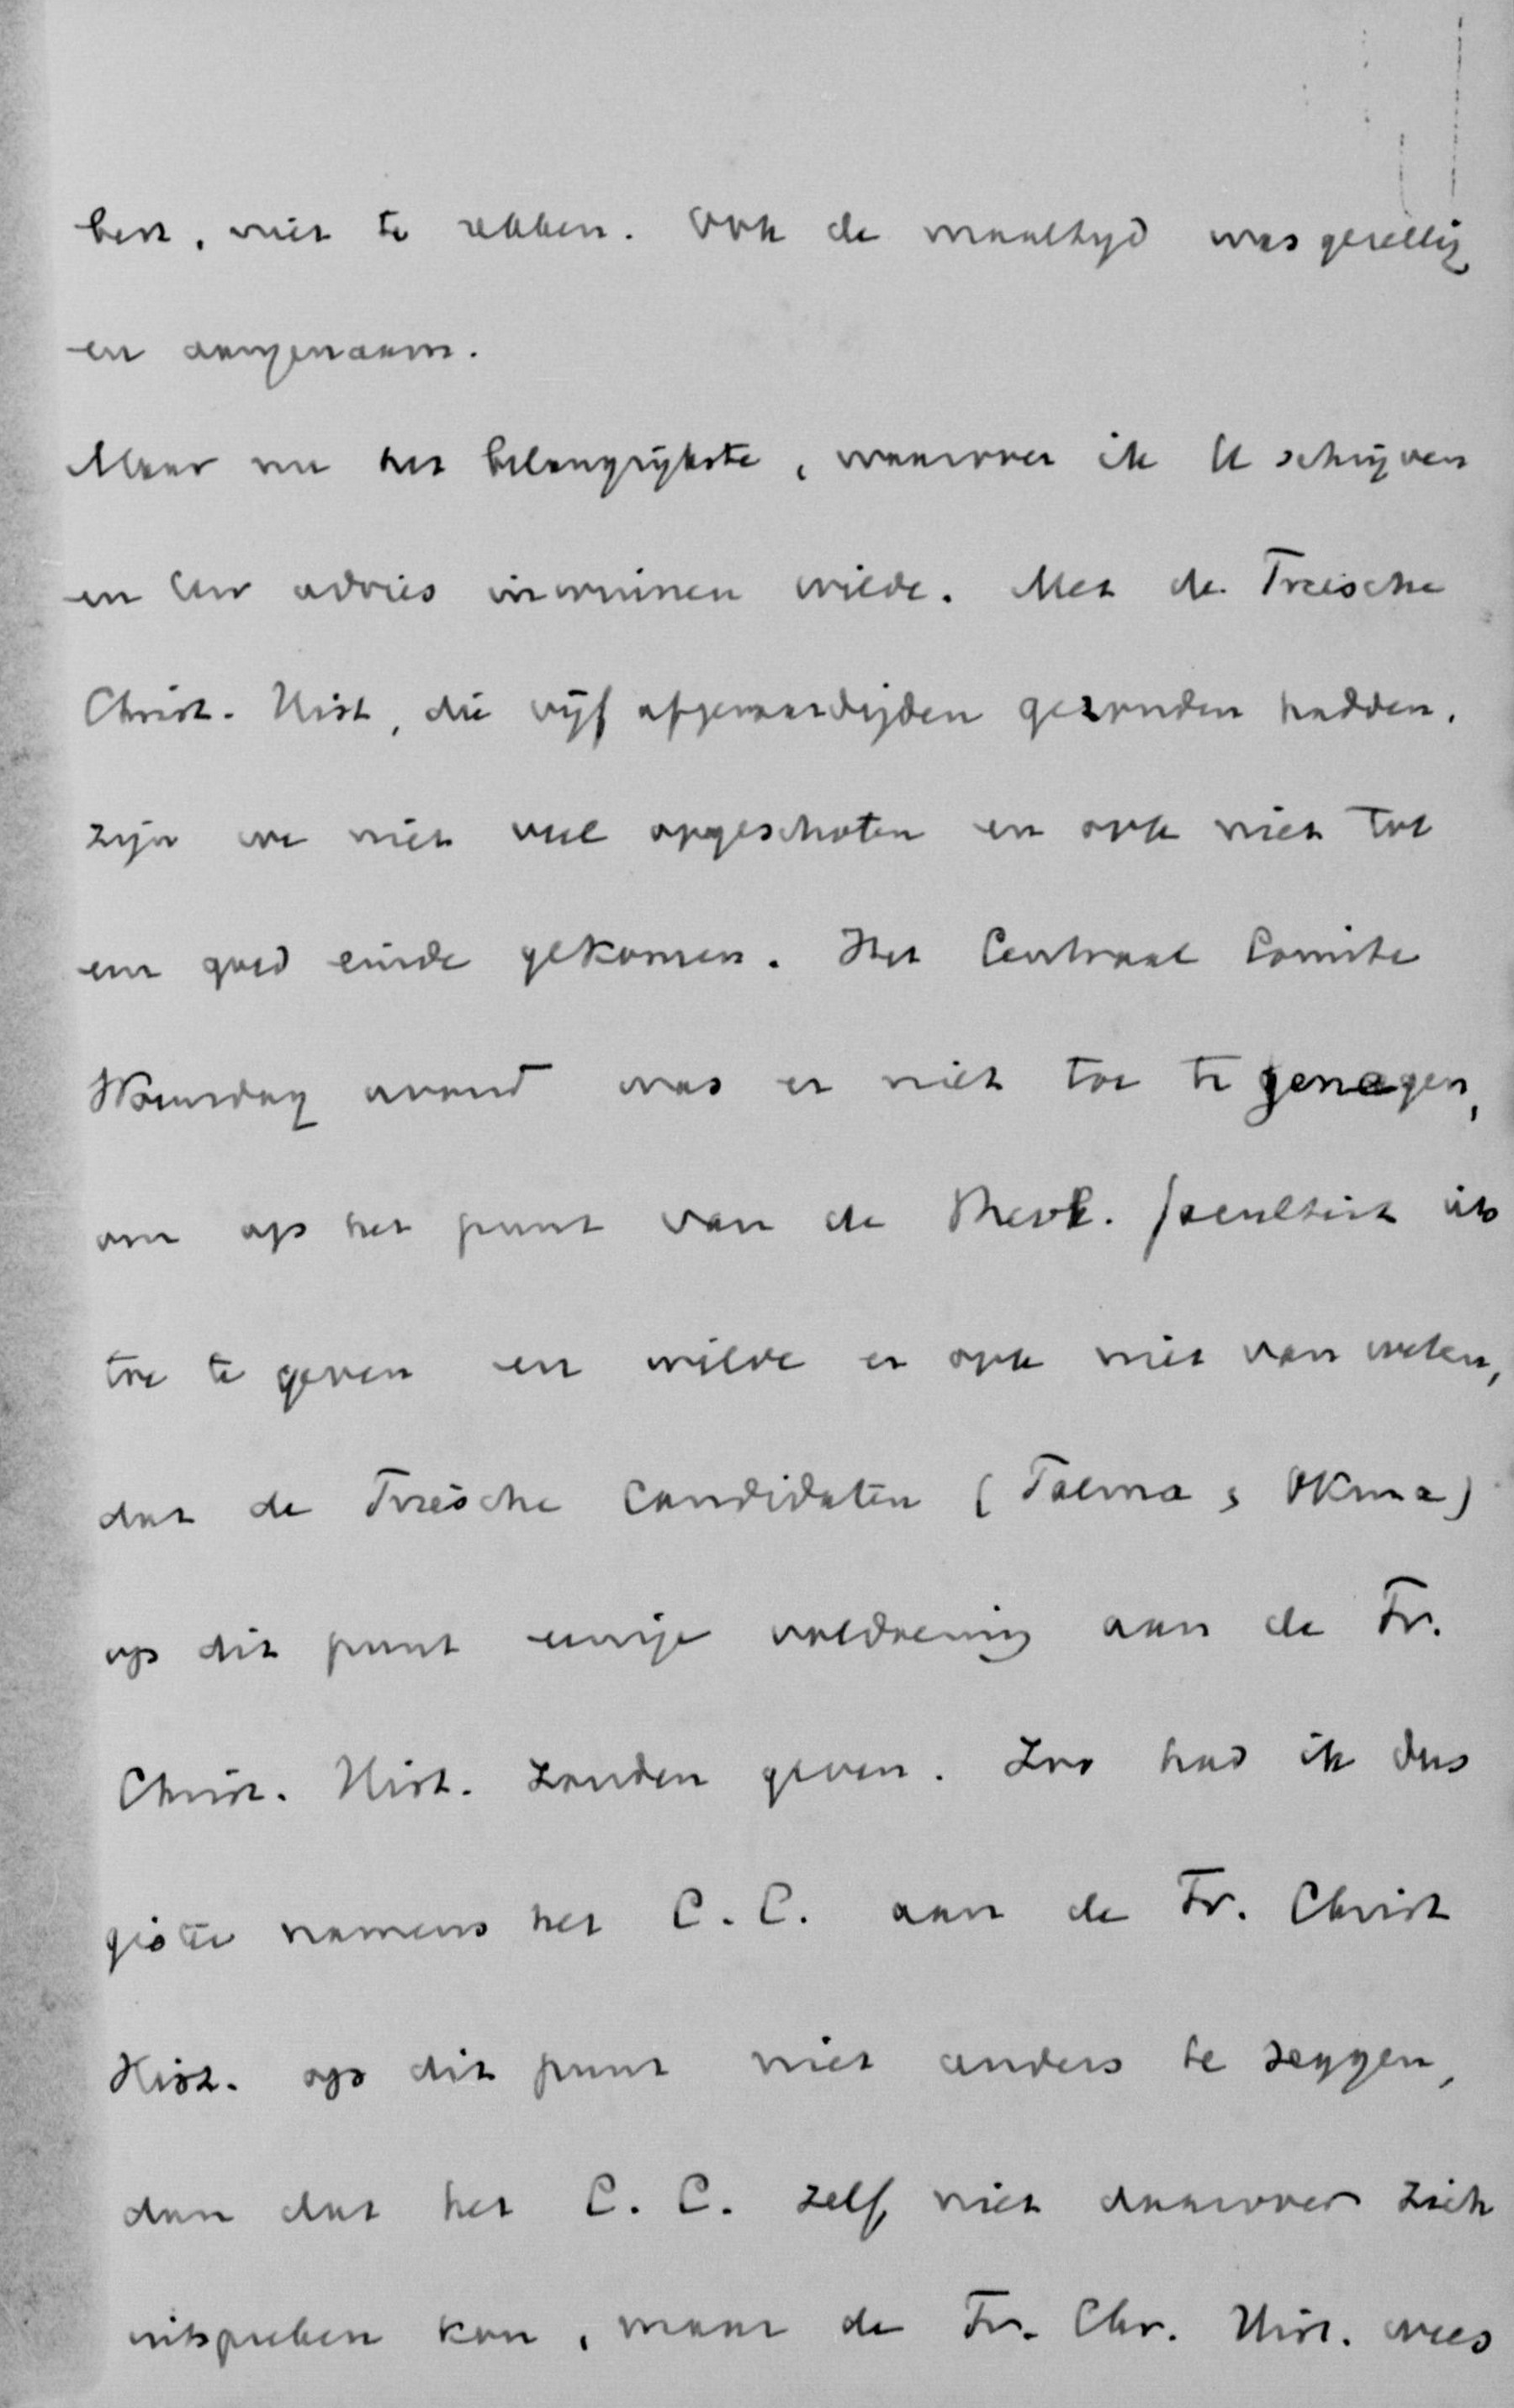 best, niet te hebben. Ook de maaltijd was gezellig
en aangenaam.
Maar nu het belangrijkste, waarover ik U schrijven
en Uw advies inwinnen wilde. Met de Friesche
Christ. Hist, die vijf afgevaardigden gezonden hadden,
zijn we niet veel opgeschoten en ook niet tot
een goed einde gekomen. Het Centraal Comite
Woensdag avond was er niet toe te genegen,
om op het punt van de theol. faculteit iets
toe te geven en wilde er ook niet van weten,
dat de Friesche Candidaten (Talma & Okma)
op dit punt eenige voldoening aan de Fr.
Christ. Hist. zouden geven. Zoo had ik dus
gister namens het C. C. aan de Fr. Christ
Hist. op dit punt niet anders te zeggen,
dan dat het C. C. zelf niet daarover zich
uitspreken kon, maar de Fr. Chr. Hist. wees